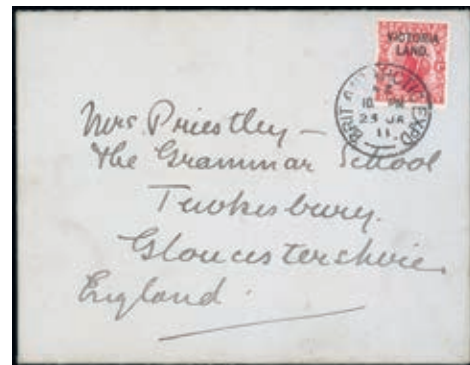 VICTORIA
LAND.
BRIT. ANTARCTIC EXPD
10 PM
23 JA
11.
Mrs Priestley —
The Grammar School
Tewkesbury.
Gloucestershire.
England.